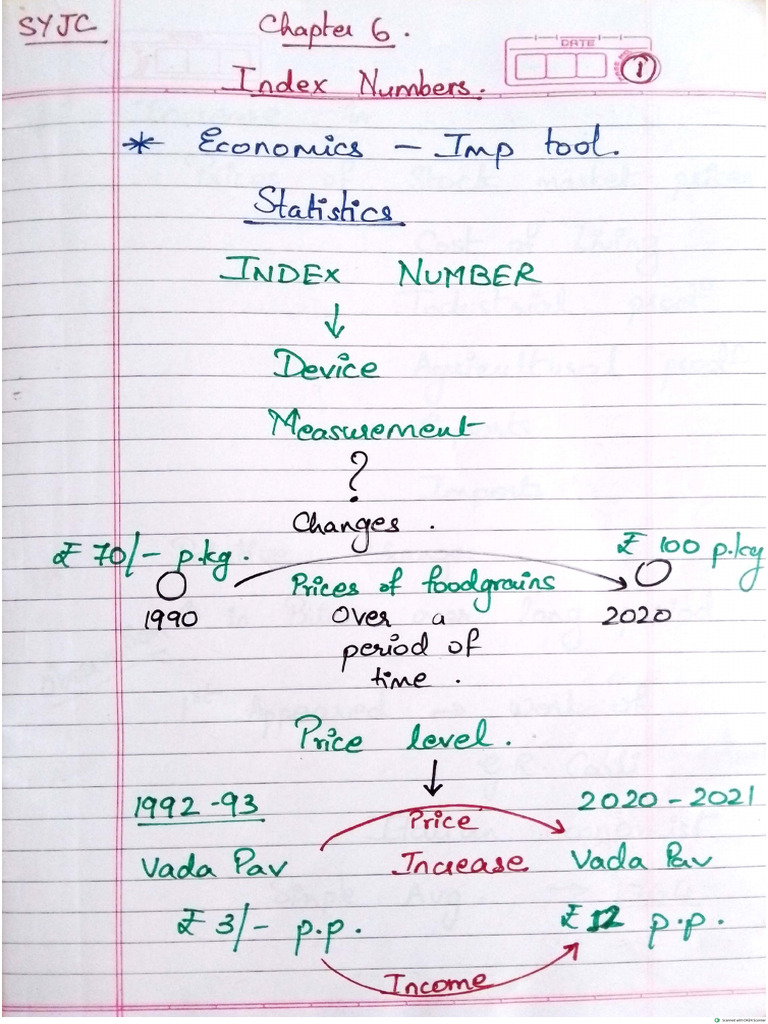 SYJC
Chapter 6.
DATE
1
Index Numbers.
* Economics - Imp tool.
Statistics
INDEX NUMBER
↓
Device
Measurement
?
Changes.
₹ 70/- p.kg.
₹ 100 p.kg
Prices of foodgrains
1990 Over a 2020
period of
time.
Price level.
↓
1992-93 2020-2021
Price
Vada Pav Increase Vada Pav
₹ 3/- p.p. ₹ 12 p.p.
Income
Scanned with OKEN Scanner